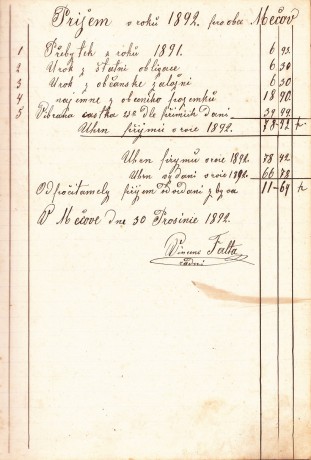 Přijem v roků 1892. pro obec Mečov
1 Přebytek z roků 1891. 6 93.
2 Urok z štatni obligace 6 30
3 Urok z občanske založni 6 30
4 najemne z obecniho pozemků 18 90.
5 Vibraka častka dle přimich dani 39 99.
Uhrn přijmů v roce 1892. 78-42
Uhrn přijmů v roce 1892. 78 42.
Uhrn vydani v roce 1892. 66 78
Odpočitamely přijem odvdani zbyva 11-64
V Mečove dne 30 Prosince 1892.
Vincenc Falta